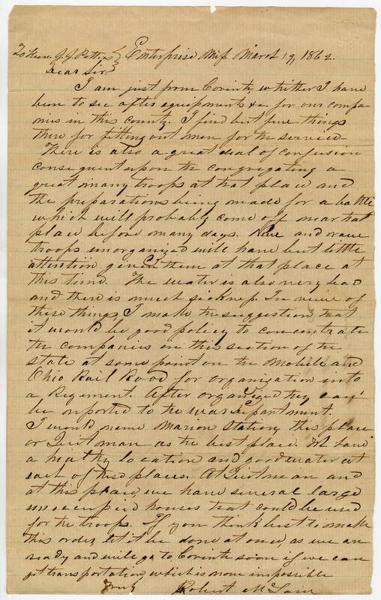 To Hon. J. J. Pettus Enterprise Miss March 19, 1862.
Dear Sir
I am just from Corinth, whither I have
been to see after equipments &c for our compa-
nies in this county. I find but few things
there for fitting out men for the service.
There is also a great deal of confusion
consequent upon the congregating a
great many troops at that place and
the preparations being made for a battle
which will probably come off near that
place before many days. New and raw
troops unorganized will have but little
attention given them at that place at
this time. The water is also very bad
and there is much sickness. In view of
these things I make the suggestion, that
it would be good policy to concentrate
the companies in this section of the
state at some point on the Mobile and
Ohio Rail Road for organization into
a Regiment. After organized they can
be reported to the war department.
I would name Marion Station, this place
or Quitman as the best place to have
a healthy location and good water at
each of these places. At Quitman and
at this place, we have several large
unoccupied houses that could be used
for the troops. If you think best to make
this order let it be done at once, as we are
ready and will go to Corinth soon if we can
get transportation, which is now impossible
Yours Robert McLain